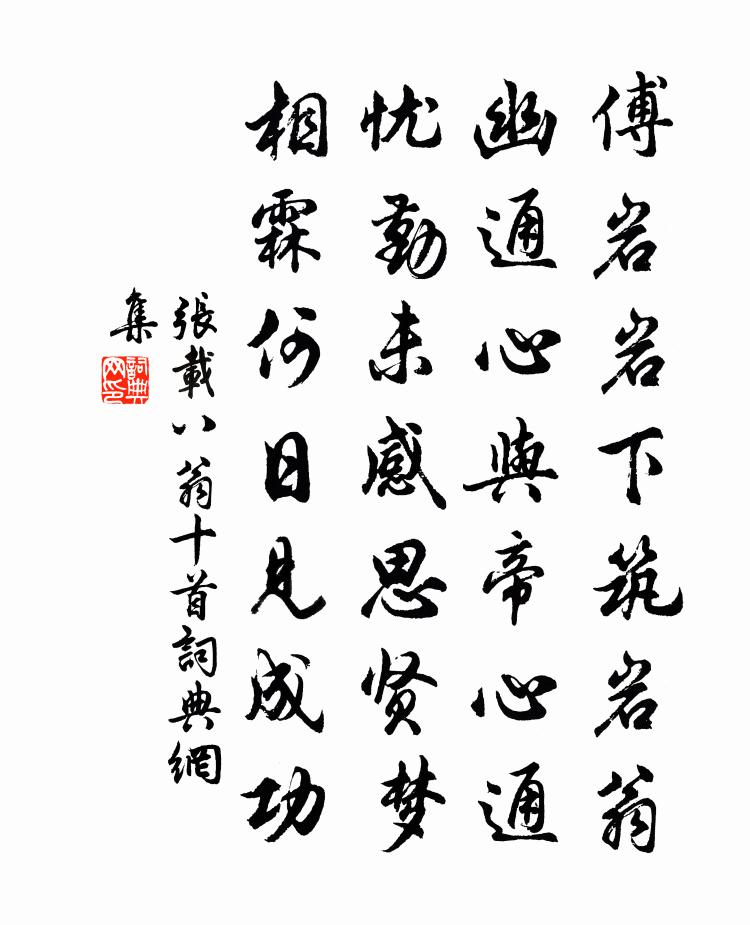 傅岩岩下筑岩翁
幽通心與帝心通
忧勤未感思贤梦
相霖何日見成功
張載八翁十首詞典網
集
詞典
网印